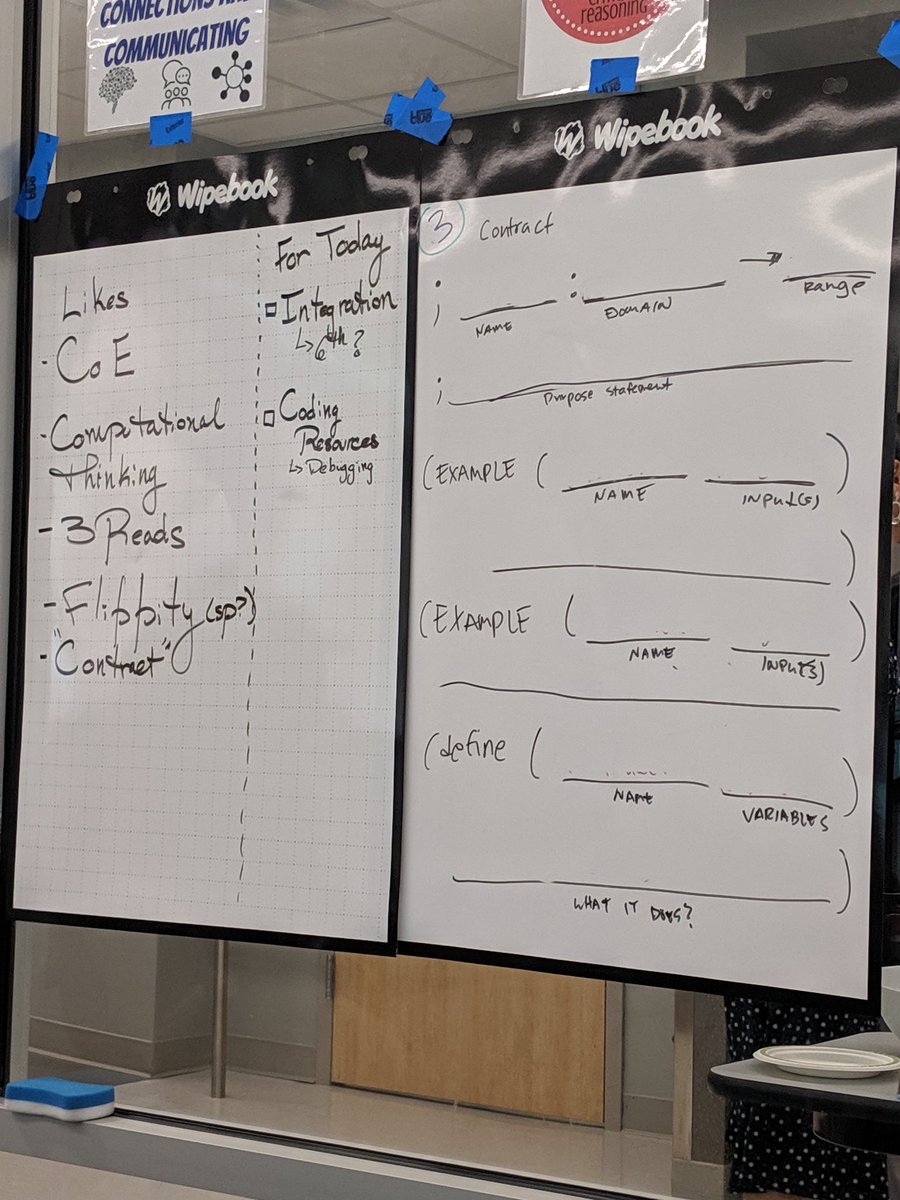 CONNECTIONS AND
COMMUNICATING
reasoning
Wipebook
Likes
- CoE
- Computational
Thinking
- 3 Reads
- Flippity (sp?)
- "Contract"
For Today
Integration
↳ 6th?
Coding
Resources
↳ Debugging
Wipebook
3 Contract
; ____ : ____ → ____
NAME DOMAIN Range
; ____
Purpose statement
(EXAMPLE ( ____ ____ )
NAME INPUt(s)
____ )
(EXAMPLE ( ____ ____ )
NAME INPUt(s)
____
(define ( ____ ____ )
NAME VARIABLES
____ )
WHAT IT DOES?